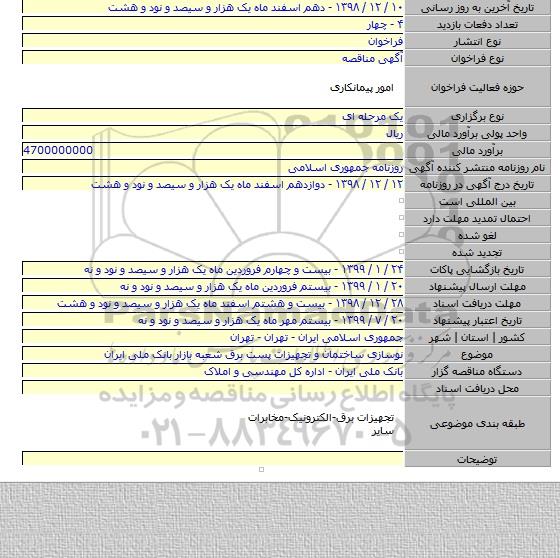 تاریخ آخرین به روز رسانی ۱۰ / ۱۲ / ۱۳۹۸ - دهم اسفند ماه یک هزار و سیصد و نود و هشت
تعداد دفعات بازدید ۴ - چهار
نوع انتشار فراخوان
نوع فراخوان آگهی مناقصه
حوزه فعالیت فراخوان امور پیمانکاری
نوع برگزاری یک مرحله ای
واحد پولی برآورد مالی ریال
برآورد مالی 4700000000
نام روزنامه منتشر کننده آگهی روزنامه جمهوری اسلامی
تاریخ درج آگهی در روزنامه ۱۲ / ۱۲ / ۱۳۹۸ - دوازدهم اسفند ماه یک هزار و سیصد و نود و هشت
بین المللی است
احتمال تمدید مهلت دارد
لغو شده
تجدید شده
تاریخ بازگشایی پاکات ۲۴ / ۱ / ۱۳۹۹ - بیست و چهارم فروردین ماه یک هزار و سیصد و نود و نه
مهلت ارسال پیشنهاد ۲۰ / ۱ / ۱۳۹۹ - بیستم فروردین ماه یک هزار و سیصد و نود و نه
مهلت دریافت اسناد ۲۸ / ۱۲ / ۱۳۹۸ - بیست و هشتم اسفند ماه یک هزار و سیصد و نود و هشت
تاریخ اعتبار پیشنهاد ۲۰ / ۷ / ۱۳۹۹ - بیستم مهر ماه یک هزار و سیصد و نود و نه
کشور | استان | شهر جمهوری اسلامی ایران - تهران - تهران
موضوع نوسازی ساختمان و تجهیزات پست برق شعبه بازار بانک ملی ایران
دستگاه مناقصه گزار بانک ملی ایران - اداره کل مهندسی و املاک
محل دریافت اسناد
پایگاه اطلاع رسانی مناقصه و مزایده
طبقه بندی موضوعی تجهیزات برق-الکترونیک-مخابرات
سایر
۰۲۱-۸۸۳۴۹۶۷۰-۵
توضیحات
ParsNamadData